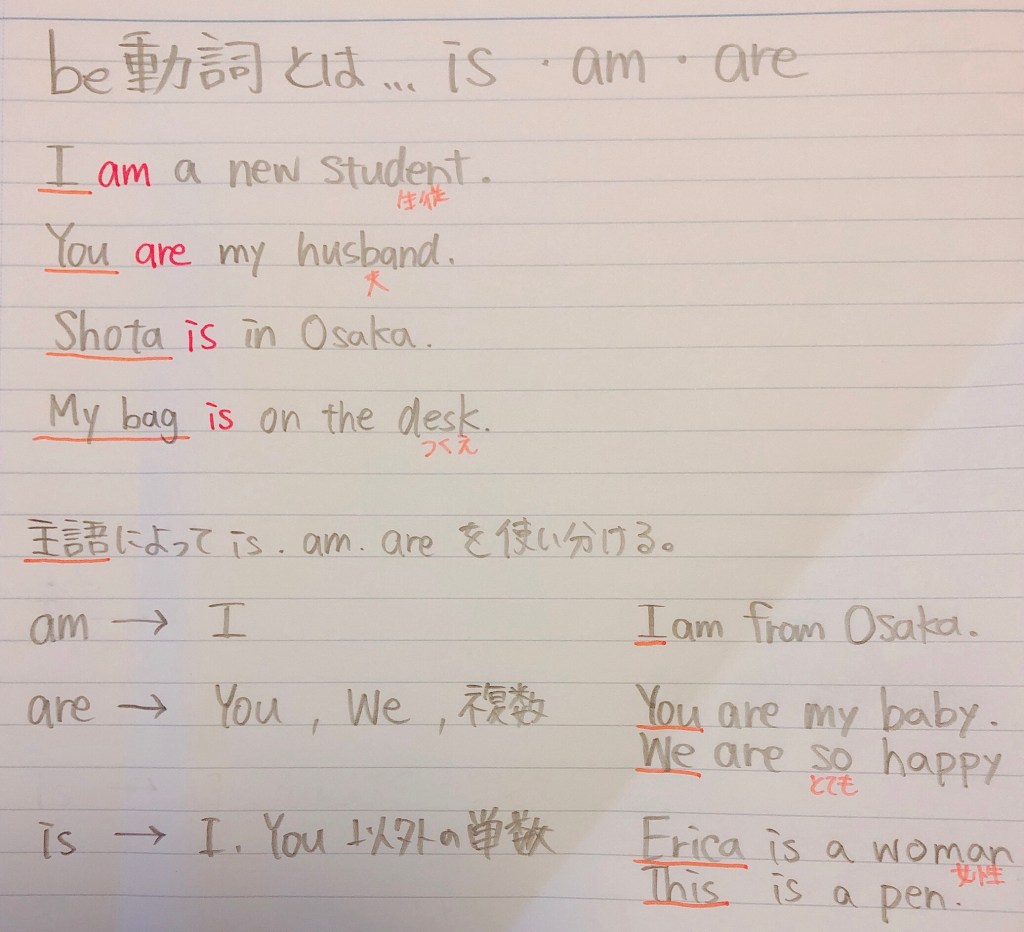 be動詞とは... is ・ am ・ are
I am a new student.
生徒
You are my husband.
夫
Shota is in Osaka.
My bag is on the desk.
つくえ
主語によって is. am. are を使い分ける。
am → I
I am from Osaka.
are → You, We, 複数
You are my baby.
We are so happy
とても
is → I. You 以外の単数
Erica is a woman
女性
This is a pen.